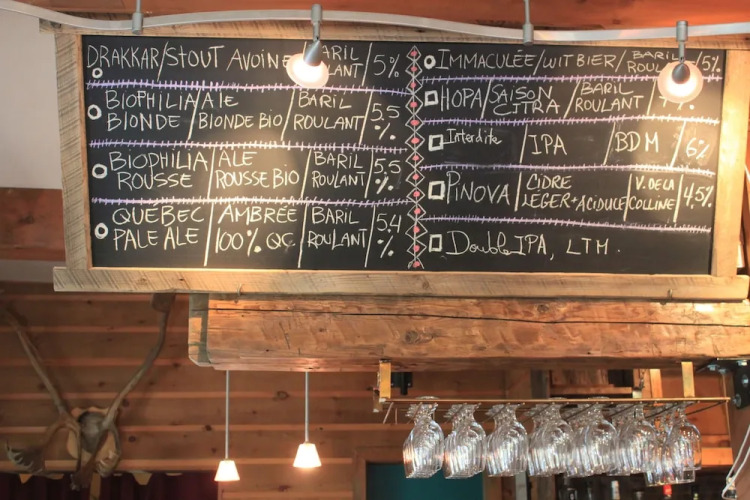 DRAKKAR/STOUT AVOINE/BARIL ROULANT/5%
BIOPHILIA BLONDE/Ale BLONDE BIO/BARIL ROULANT/5.5 %
BIOPHILIA ROUSSE/ALE ROUSSE BIO/BARIL ROULANT/5.5 %
QUEBEC PALE ALE/AMBRÉE 100% QC/BARIL ROULANT/5.4 %
IMMACULÉE/WIT BIER/BARIL ROUL /5%
HOPA/SAISON CITRA/BARIL ROULANT/
Interdite/IPA/BDM/6%
PINOVA/CIDRE LÉGER+ACIDULÉ/V. DE LA COLLINE/4,5%
Double IPA, LTM.